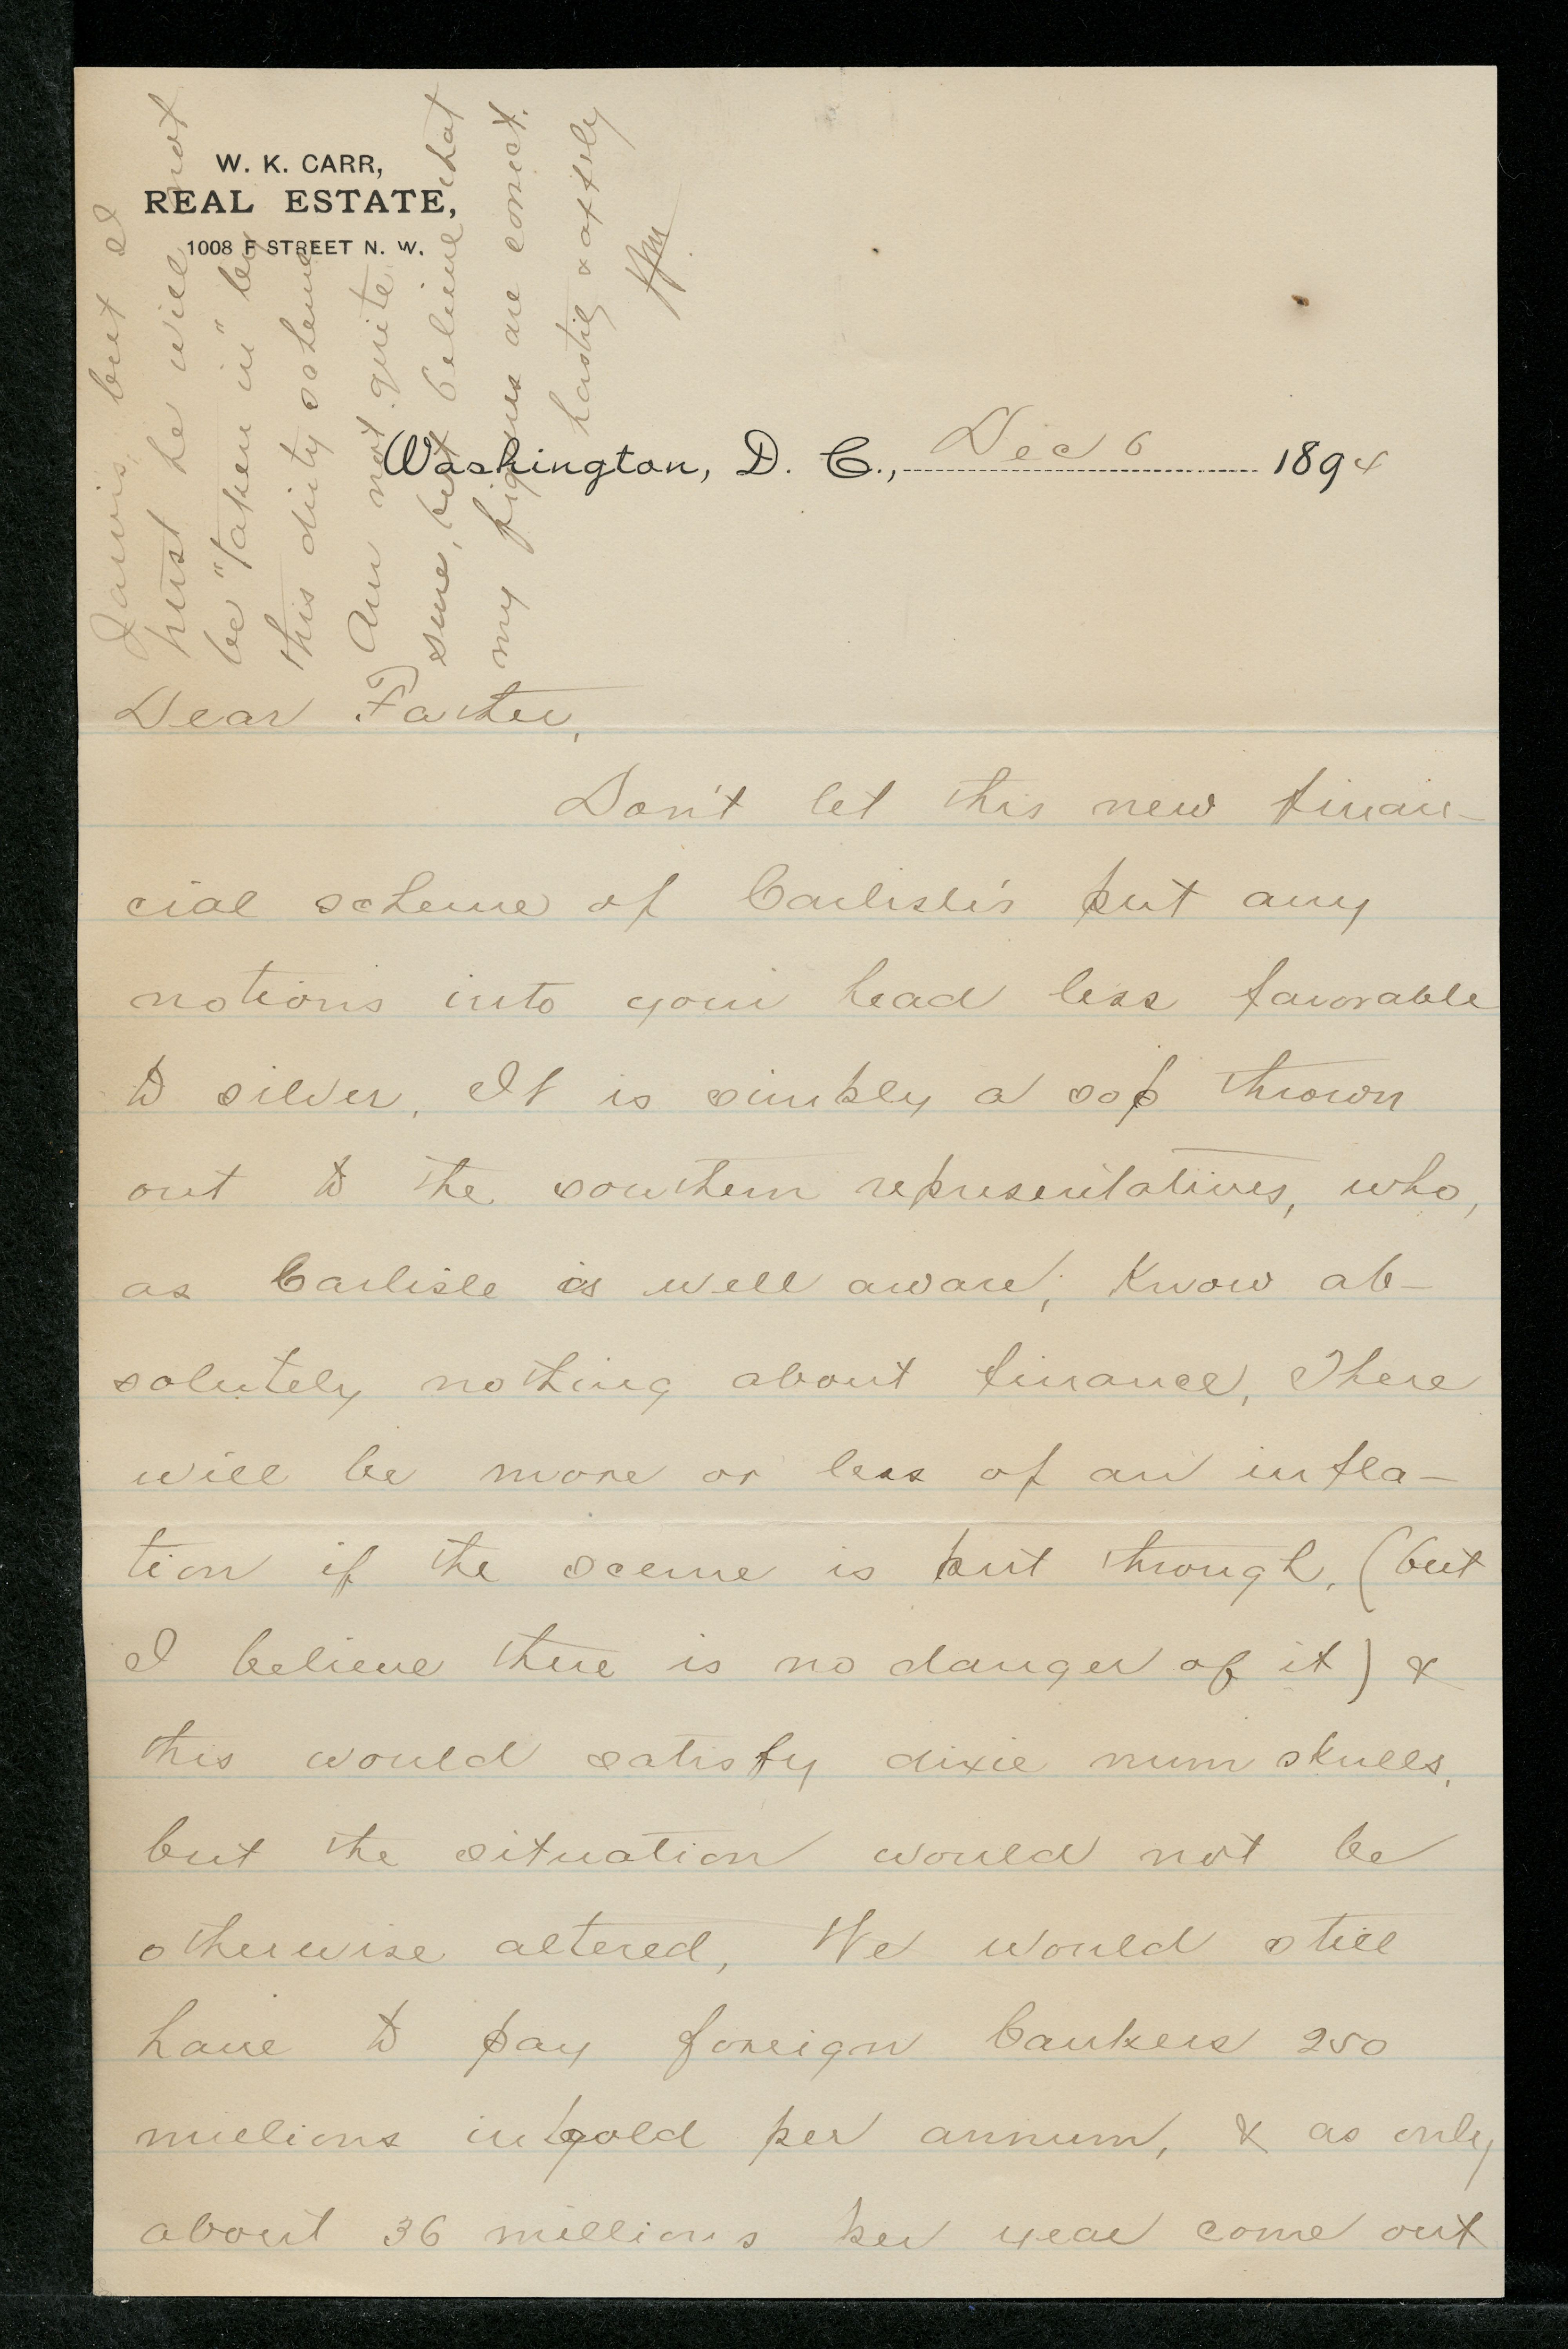 W. K. CARR,
REAL ESTATE,
1008 F STREET N. W.
Washington, D. C., Dec 6 1894
Dear Father,
Don't let this new finan-
cial scheme of Carlisle's put any
notions into your head less favorable
to silver. It is simply a sop thrown
out to the southern representatives, who,
as Carlisle is well aware, know ab-
solutely nothing about finance. There
will be more or less of an infla-
tion if the sceme is put through, (but
I believe there is no danger of it) &
this would satisfy dixie numskulls,
but the situation would not be
otherwise altered. We would still
have to pay foreign bankers 250
millions in gold per annum, & as only
about 36 millions per year come out
Jarvis, but I
trust he will not
be "taken in" by
this dirty scheme
Am not quite
sure, but believe that
my figures are correct.
hastily & affly